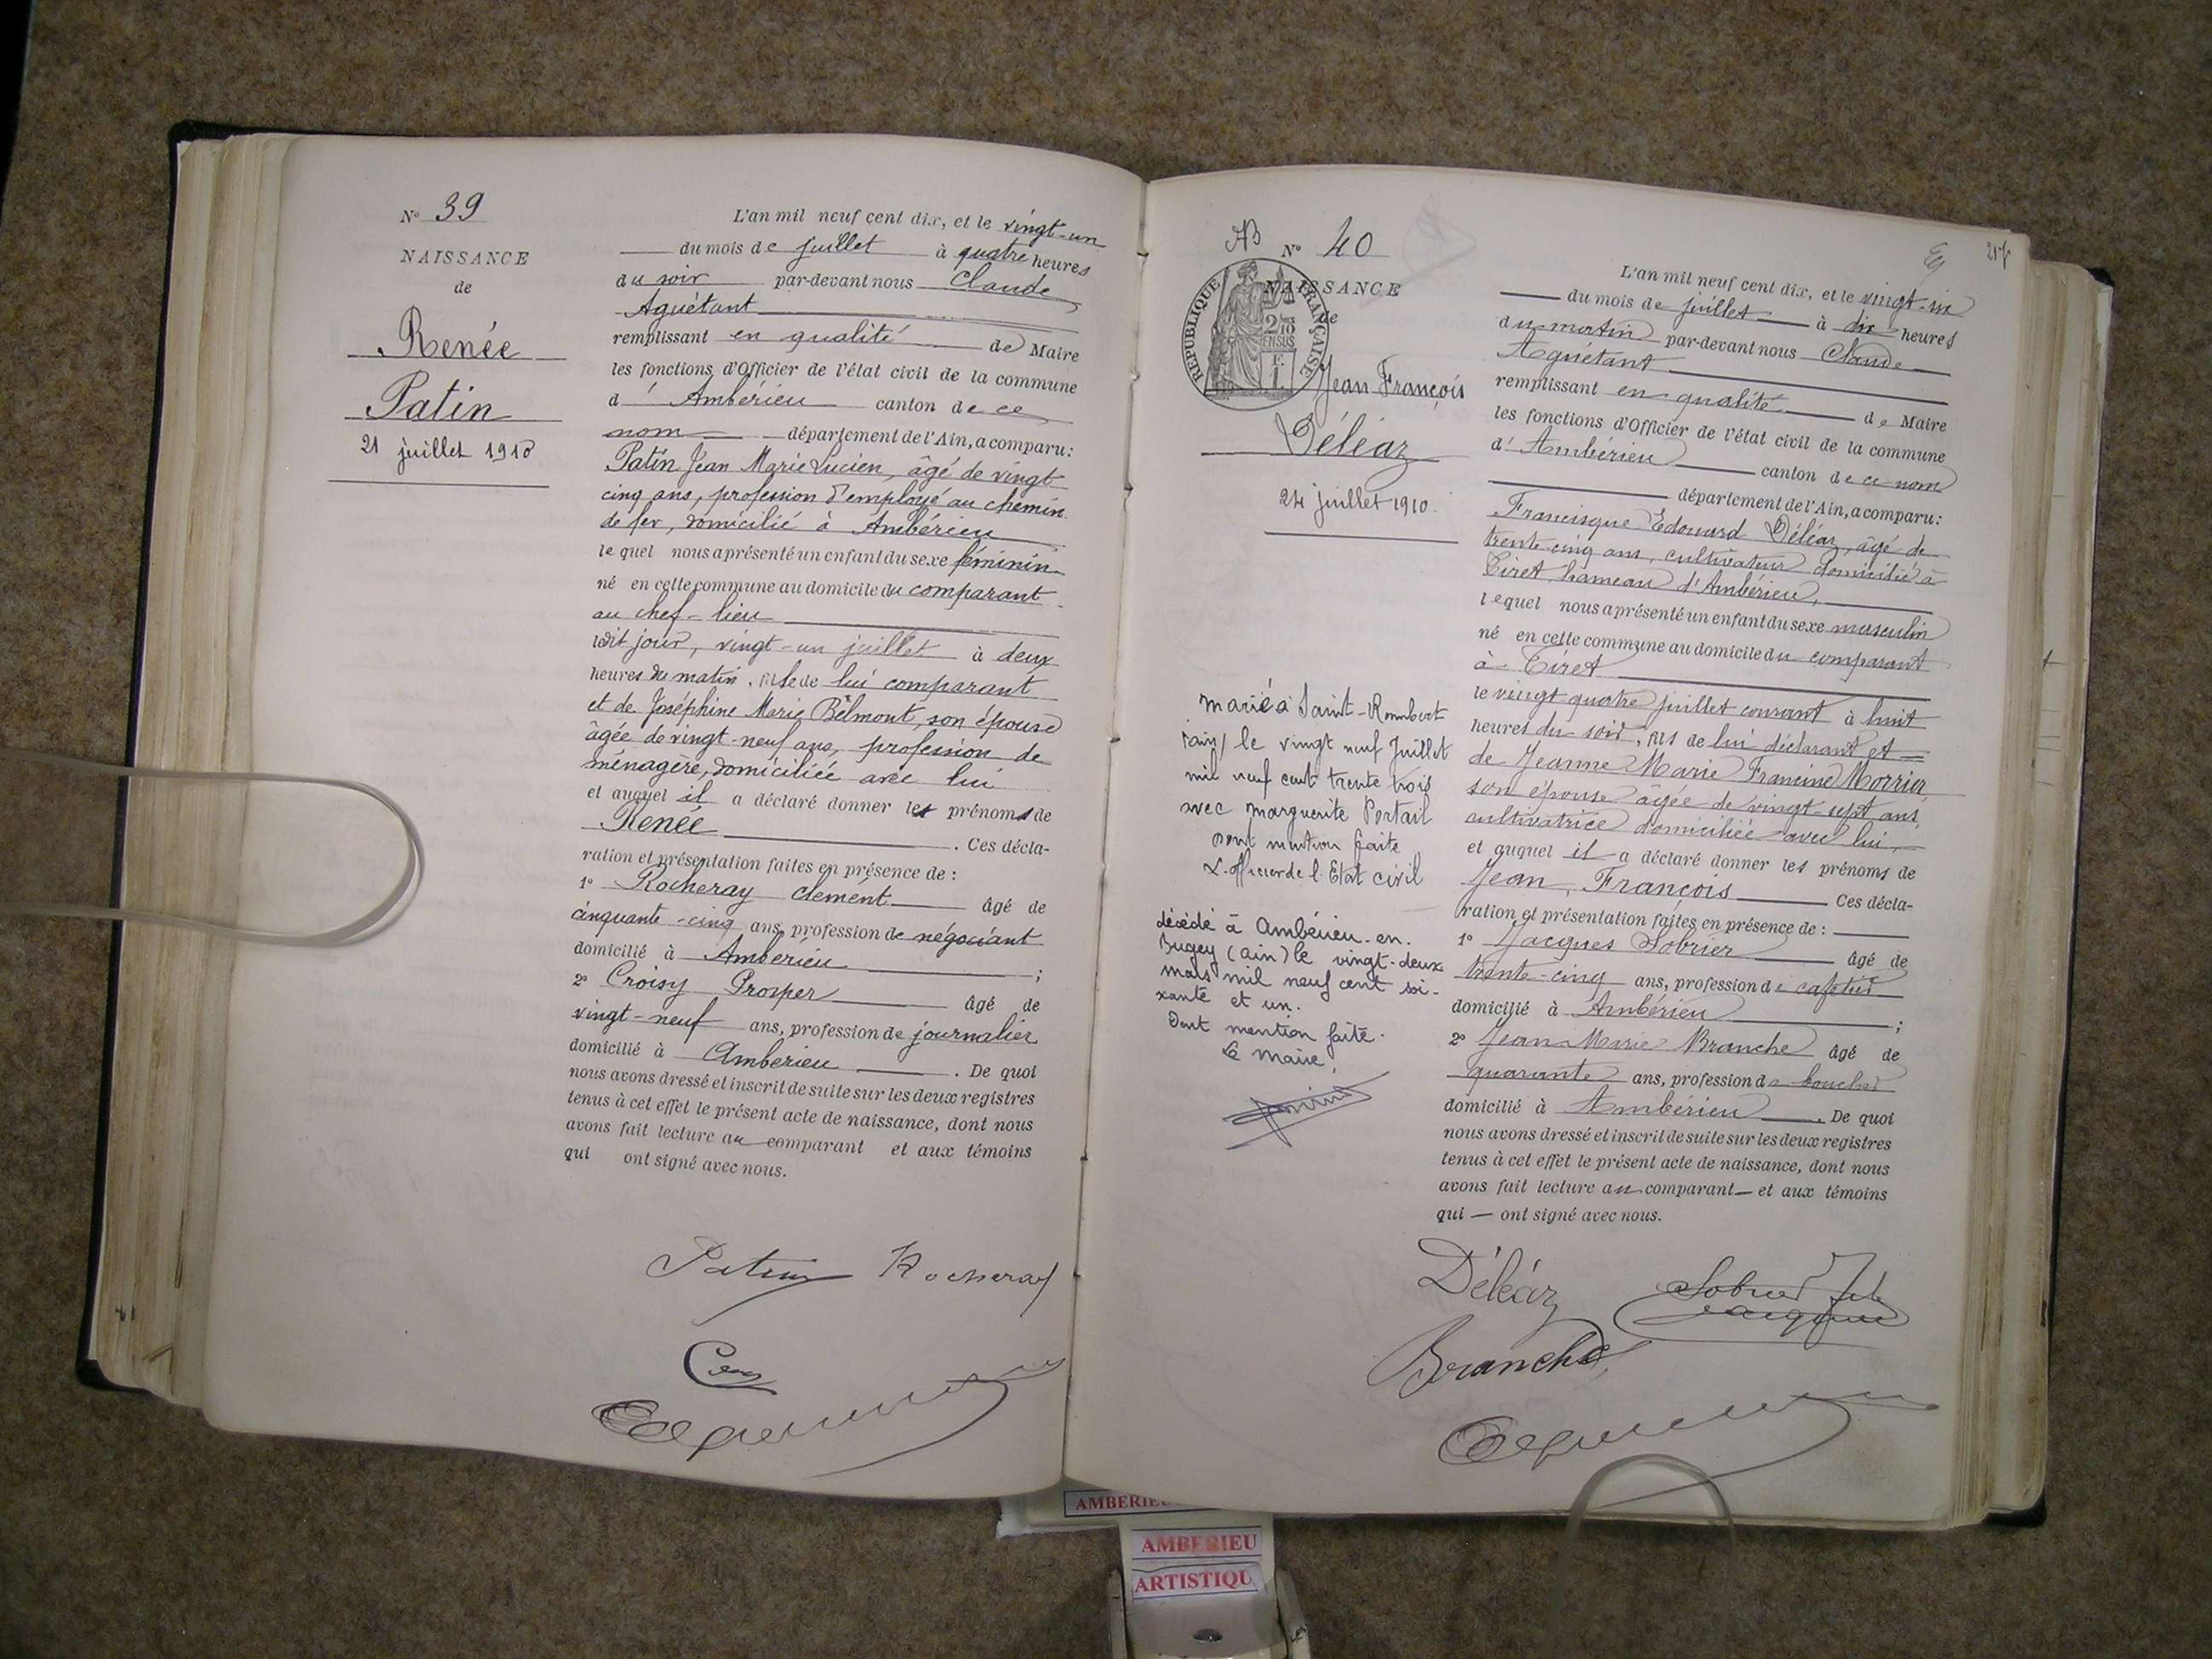 N° 39
NAISSANCE
de
Renée
Patin
21 juillet 1910
L'an mil neuf cent dix, et le vingt-un
du mois de juillet à quatre heures
du soir par-devant nous Claude
Aguétant
remplissant en qualité de Maire
les fonctions d'Officier de l'état civil de la commune
d' Ambérieu canton de ce
nom département de l'Ain, a comparu:
Patin Jean Marie Lucien, âgé de vingt
cinq ans, profession d'employé au chemin
de fer, domicilié à Ambérieu
lequel nous a présenté un enfant du sexe féminin
né en cette commune au domicile du comparant
au chef-lieu
dit jour, vingt-un juillet à deux
heures du matin. fille de lui comparant
et de Joséphine Marie Belmont, son épouse
âgée de vingt-neuf ans, profession de
ménagère, domiciliée avec lui
et auquel il a déclaré donner les prénoms de
Renée . Ces décla-
ration et présentation faites en présence de :
1° Rocheray clément âgé de
cinquante-cinq ans, profession de négociant
domicilié à Ambérieu ;
2° Croisy Prosper âgé de
vingt-neuf ans, profession de journalier
domicilié à Ambérieu . De quoi
nous avons dressé et inscrit de suite sur les deux registres
tenus à cet effet le présent acte de naissance, dont nous
avons fait lecture au comparant et aux témoins
qui ont signé avec nous.
Patin Rocheray
AB N° 40
NAISSANCE
de
RÉPUBLIQUE FRANÇAISE
2/10 EN SUS
1 F.
Jean François
Déléaz
24 juillet 1910.
217
L'an mil neuf cent dix, et le vingt-six
du mois de juillet à dix heures
du matin par-devant nous Claude
Aguétant
remplissant en qualité de Maire
les fonctions d'Officier de l'état civil de la commune
d' Ambérieu canton de ce nom
département de l'Ain, a comparu:
Francisque Edouard Déléaz, âgé de
trente-cinq ans, cultivateur domicilié à
Tiret hameau d'Ambérieu,
lequel nous a présenté un enfant du sexe masculin
né en cette commune au domicile du comparant
à Tiret
le vingt-quatre juillet courant à huit
heures du soir, fils de lui déclarant et
de Jeanne Marie Francine Morrier
son épouse âgée de vingt-sept ans,
cultivatrice domiciliée avec lui,
et auquel il a déclaré donner les prénoms de
Jean, François Ces décla-
ration et présentation faites en présence de :
1° Jacques Sobrier âgé de
trente-cinq ans, profession de cafetier
domicilié à Ambérieu ;
2° Jean Marie Branche âgé de
quarante ans, profession de boucher
domicilié à Ambérieu . De quoi
nous avons dressé et inscrit de suite sur les deux registres
tenus à cet effet le présent acte de naissance, dont nous
avons fait lecture au comparant et aux témoins
qui ont signé avec nous.
marié à Saint-Rambert
(ain) le vingt neuf Juillet
mil neuf cent trente trois
avec Marguerite Portail
dont mention faite
L'officier de l'Etat civil
décédé à Ambérieu-en-
Bugey (ain) le vingt-deux
mars mil neuf cent soi-
xante et un.
Dont mention faite.
Le Maire,
Déléaz Sobrier
Jacques
Branche
AMBERIEU
AMBERIEU
ARTISTIQU